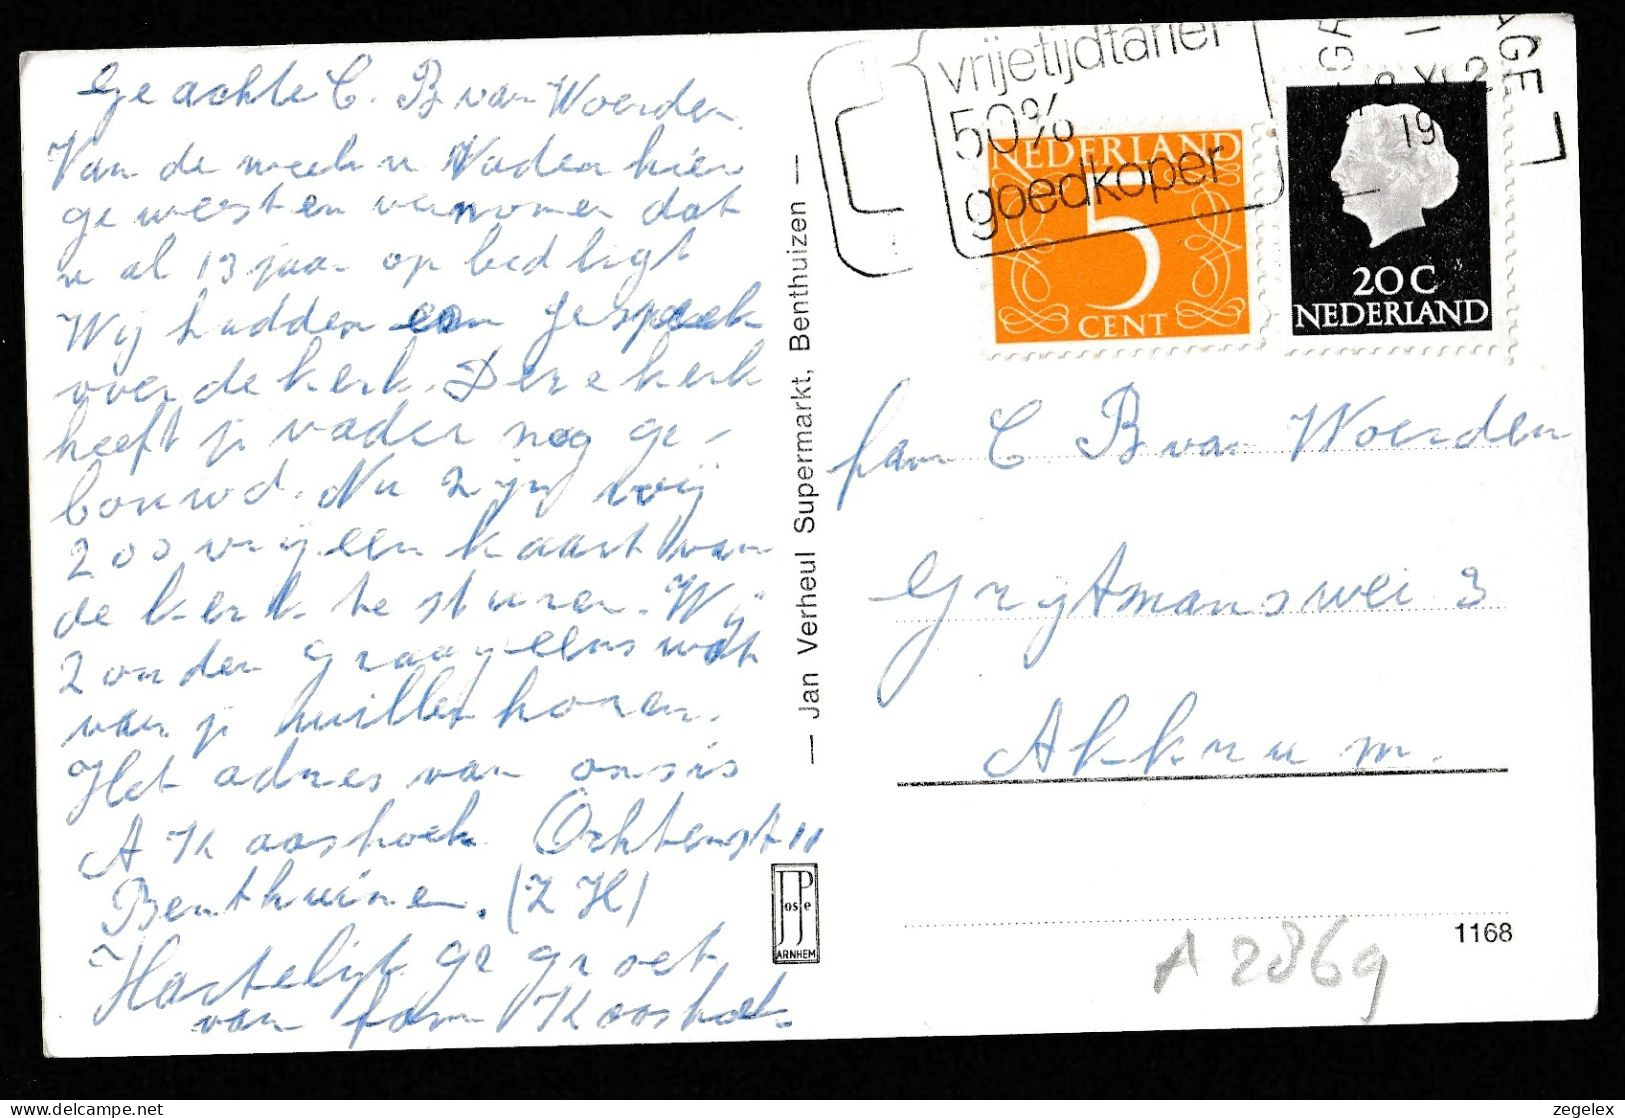 Geachte C. B van Woerden.
Van de week u Vader hier
geweest en vernomen dat
u al 13 jaar op bed ligt
Wij hadden een gesprek
over de kerk. Deze kerk
heeft je vader nog ge-
bouwd. Nu zijn wij
zoo vrij een kaart van
de kerk te sturen. Wij
zouden graag eens wat
van je willen horen.
Het adres van ons is
A Kaashoek. Ochtendst 11
Benthuizen. (Z H)
Hartelijk ge groet
van fam Kaashoek.
— Jan Verheul Supermarkt, Benthuizen —
JosPe
ARNHEM
vrijetijdtarief
50%
goedkoper
NEDERLAND
5
CENT
20 C
NEDERLAND
fam C B van Woerden
Grytmanswei 3
Akkrum.
1168
A 2869
zegelex
delcampe.net